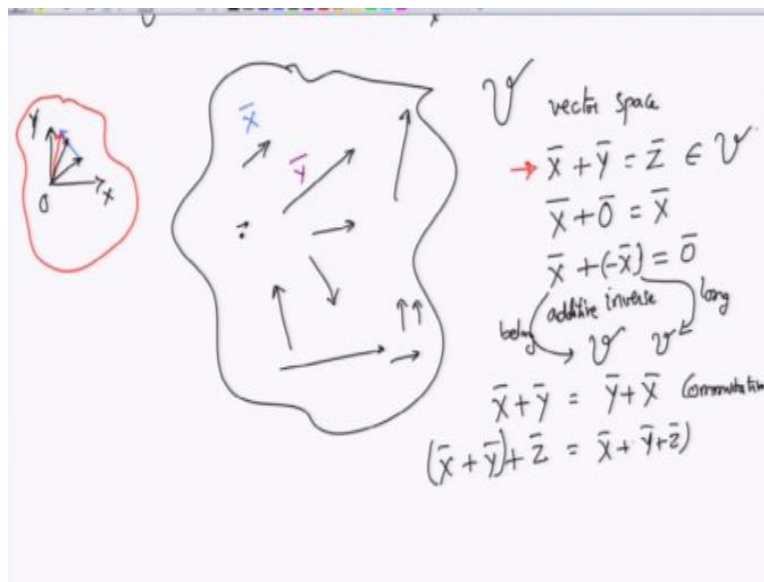 Y
X
O
X̄
Ȳ
V vector space
→ X̄ + Ȳ = Z̄ ∈ V
X̄ + 0̄ = X̄
X̄ + (-X̄) = 0̄
additive inverse
belong
long
V V
X̄ + Ȳ = Ȳ + X̄ (commutativ
(X̄ + Ȳ) + Z̄ = X̄ + Ȳ + Z̄)